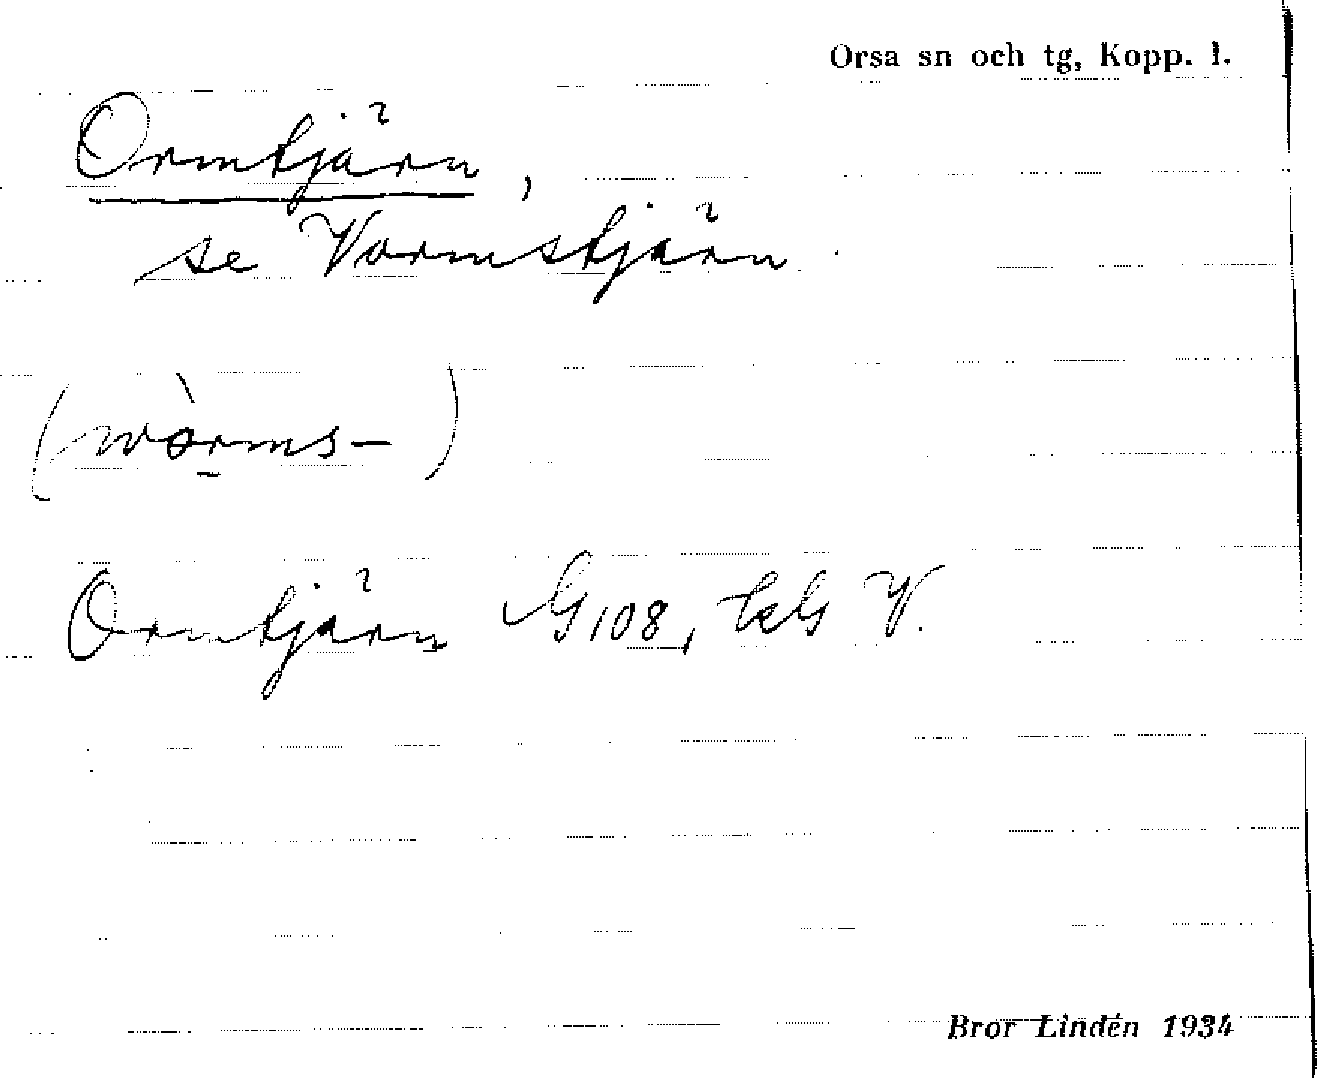 Orsa sn och tg, Kopp. l.
Ormtjärn,
se Vormstjärn.
(wòrms-)
Ormtjärn G108, V.
Bror Lindén 1934